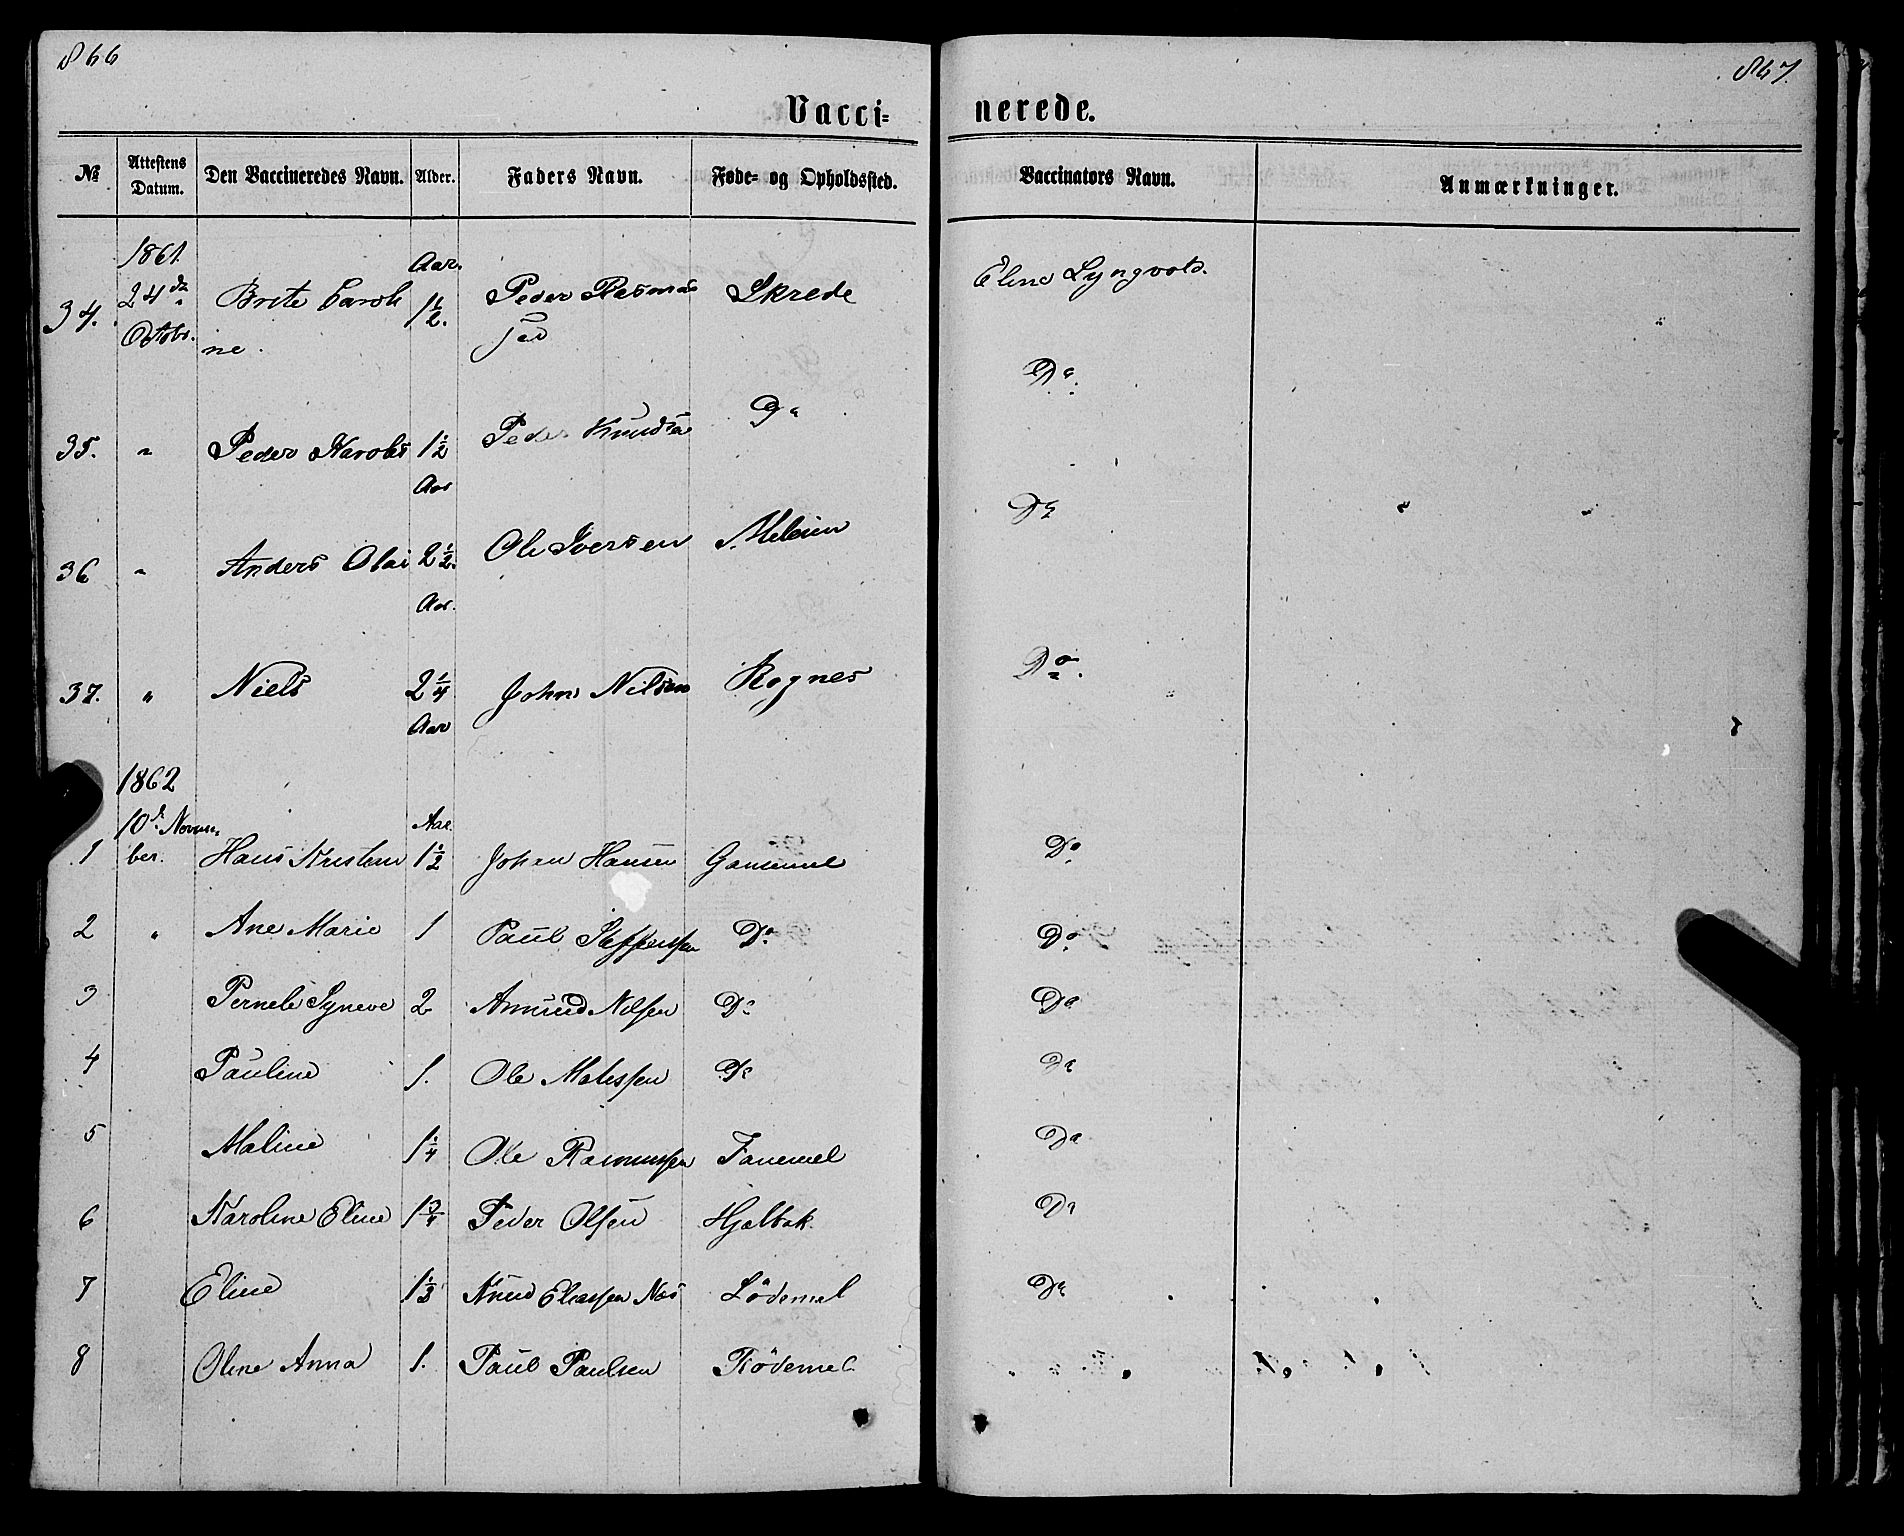 866
867.
Vacci-
nerede.
№ Attestens Datum. Den Vaccineredes Navn. Alder. Faders Navn. Føde- og Opholdssted.
Vaccinators Navn. Anmærkninger.
1861. Aar.
34. 24de Octobr. Brite Caroli 1½. Peder Rasmus Skrede Eline Lyngvold.
ne. sen
35. " Peder Karolus 1½ Peder Knudsen Do Do.
Aar
36 " Anders Olai 2½. Ole Iversen Do
Aar.
37. " Niels 2¼ John Nilsen Rognes Do.
Aar
1862
10d. Novem- Aar.
1 ber. Hans Kristian 1½ Johan Hansen Do
2 " Ane Marie 1 Paul Steffensen Do. Do.
3 Pernele Syneve 2 Amund Nilsen Do Do
4 Pauline 1. Ole Do Do
5 Maline 1¼ Ole Rasmussen Do
6 Karoline Eline 1¾ Peder Olsen Hjelbak. Do
7 Eline 1⅓ Knud Eliassen Næs Lödemel Do
8 Oline Anna 1. Paul Paulsen Rödemel